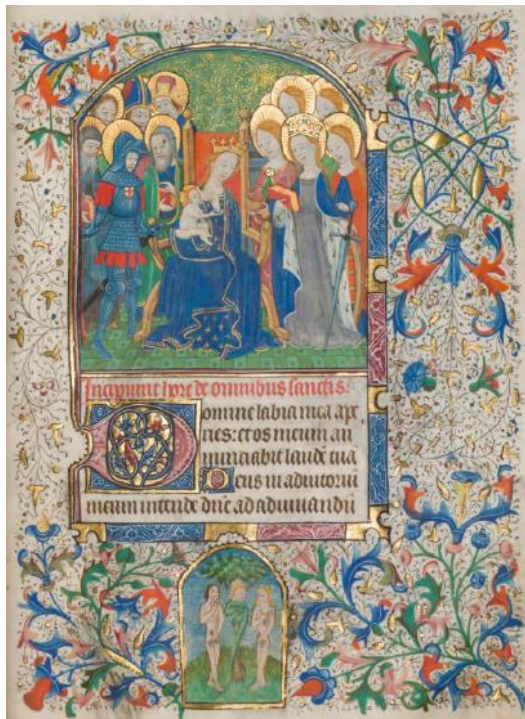 Incipiunt hore de omnibus sanctis.
Domine labia mea ape
ries: et os meum an
nunciabit laudē tua
Deus in adiutoriū
meum intende dn̄e ad adiuuandū